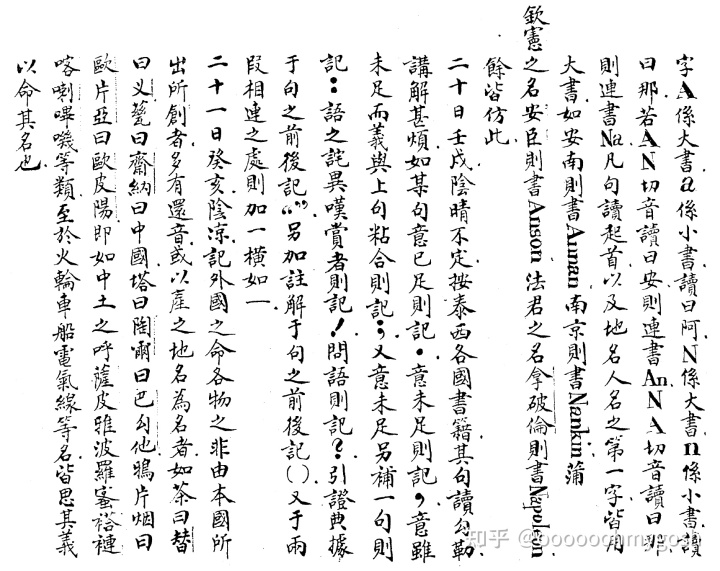 字A係大書a係小書讀曰阿N係大書n係小書讀
曰那若AN切音讀曰安則連書An.NA切音讀曰那
則連書Na凡句讀起首以及地名人名之第一字皆用
大書如安南則書Annan南京則書Nankin蒲
欽憲之名安臣則書Anson法君之名拿破倫則書Napoleon
餘皆仿此
二十日壬戌陰晴不定按泰西各國書籍其句讀勾勒
講解甚煩如某句意已足則記.意未足則記,意雖
未足而義與上句粘合則記;又意未足另補一句則
記:語之詫異嘆賞者則記!問語則記?引證典據
于句之前後記“”另加註解于句之前後記()又于兩
段相連之處則加一橫如一
二十一日癸亥陰涼記外國之命各物之非由本國所
出所創者多有還音或以產之地名為名者如茶曰替
曰义甃曰齋納曰中國塔曰陶爾曰巴勾他鴉片烟曰
歐片亞曰歐皮陽即如中土之呼薩皮雅波羅蜜褡褳
喀喇嗶嘰等類至於火輪車船電氣線等名皆思其義
以命其名也
知乎